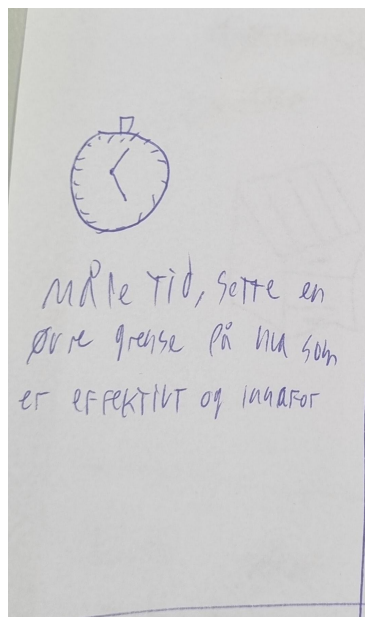 Måle tid, sette en
øvre grense på hva som
er effektivt og innafor